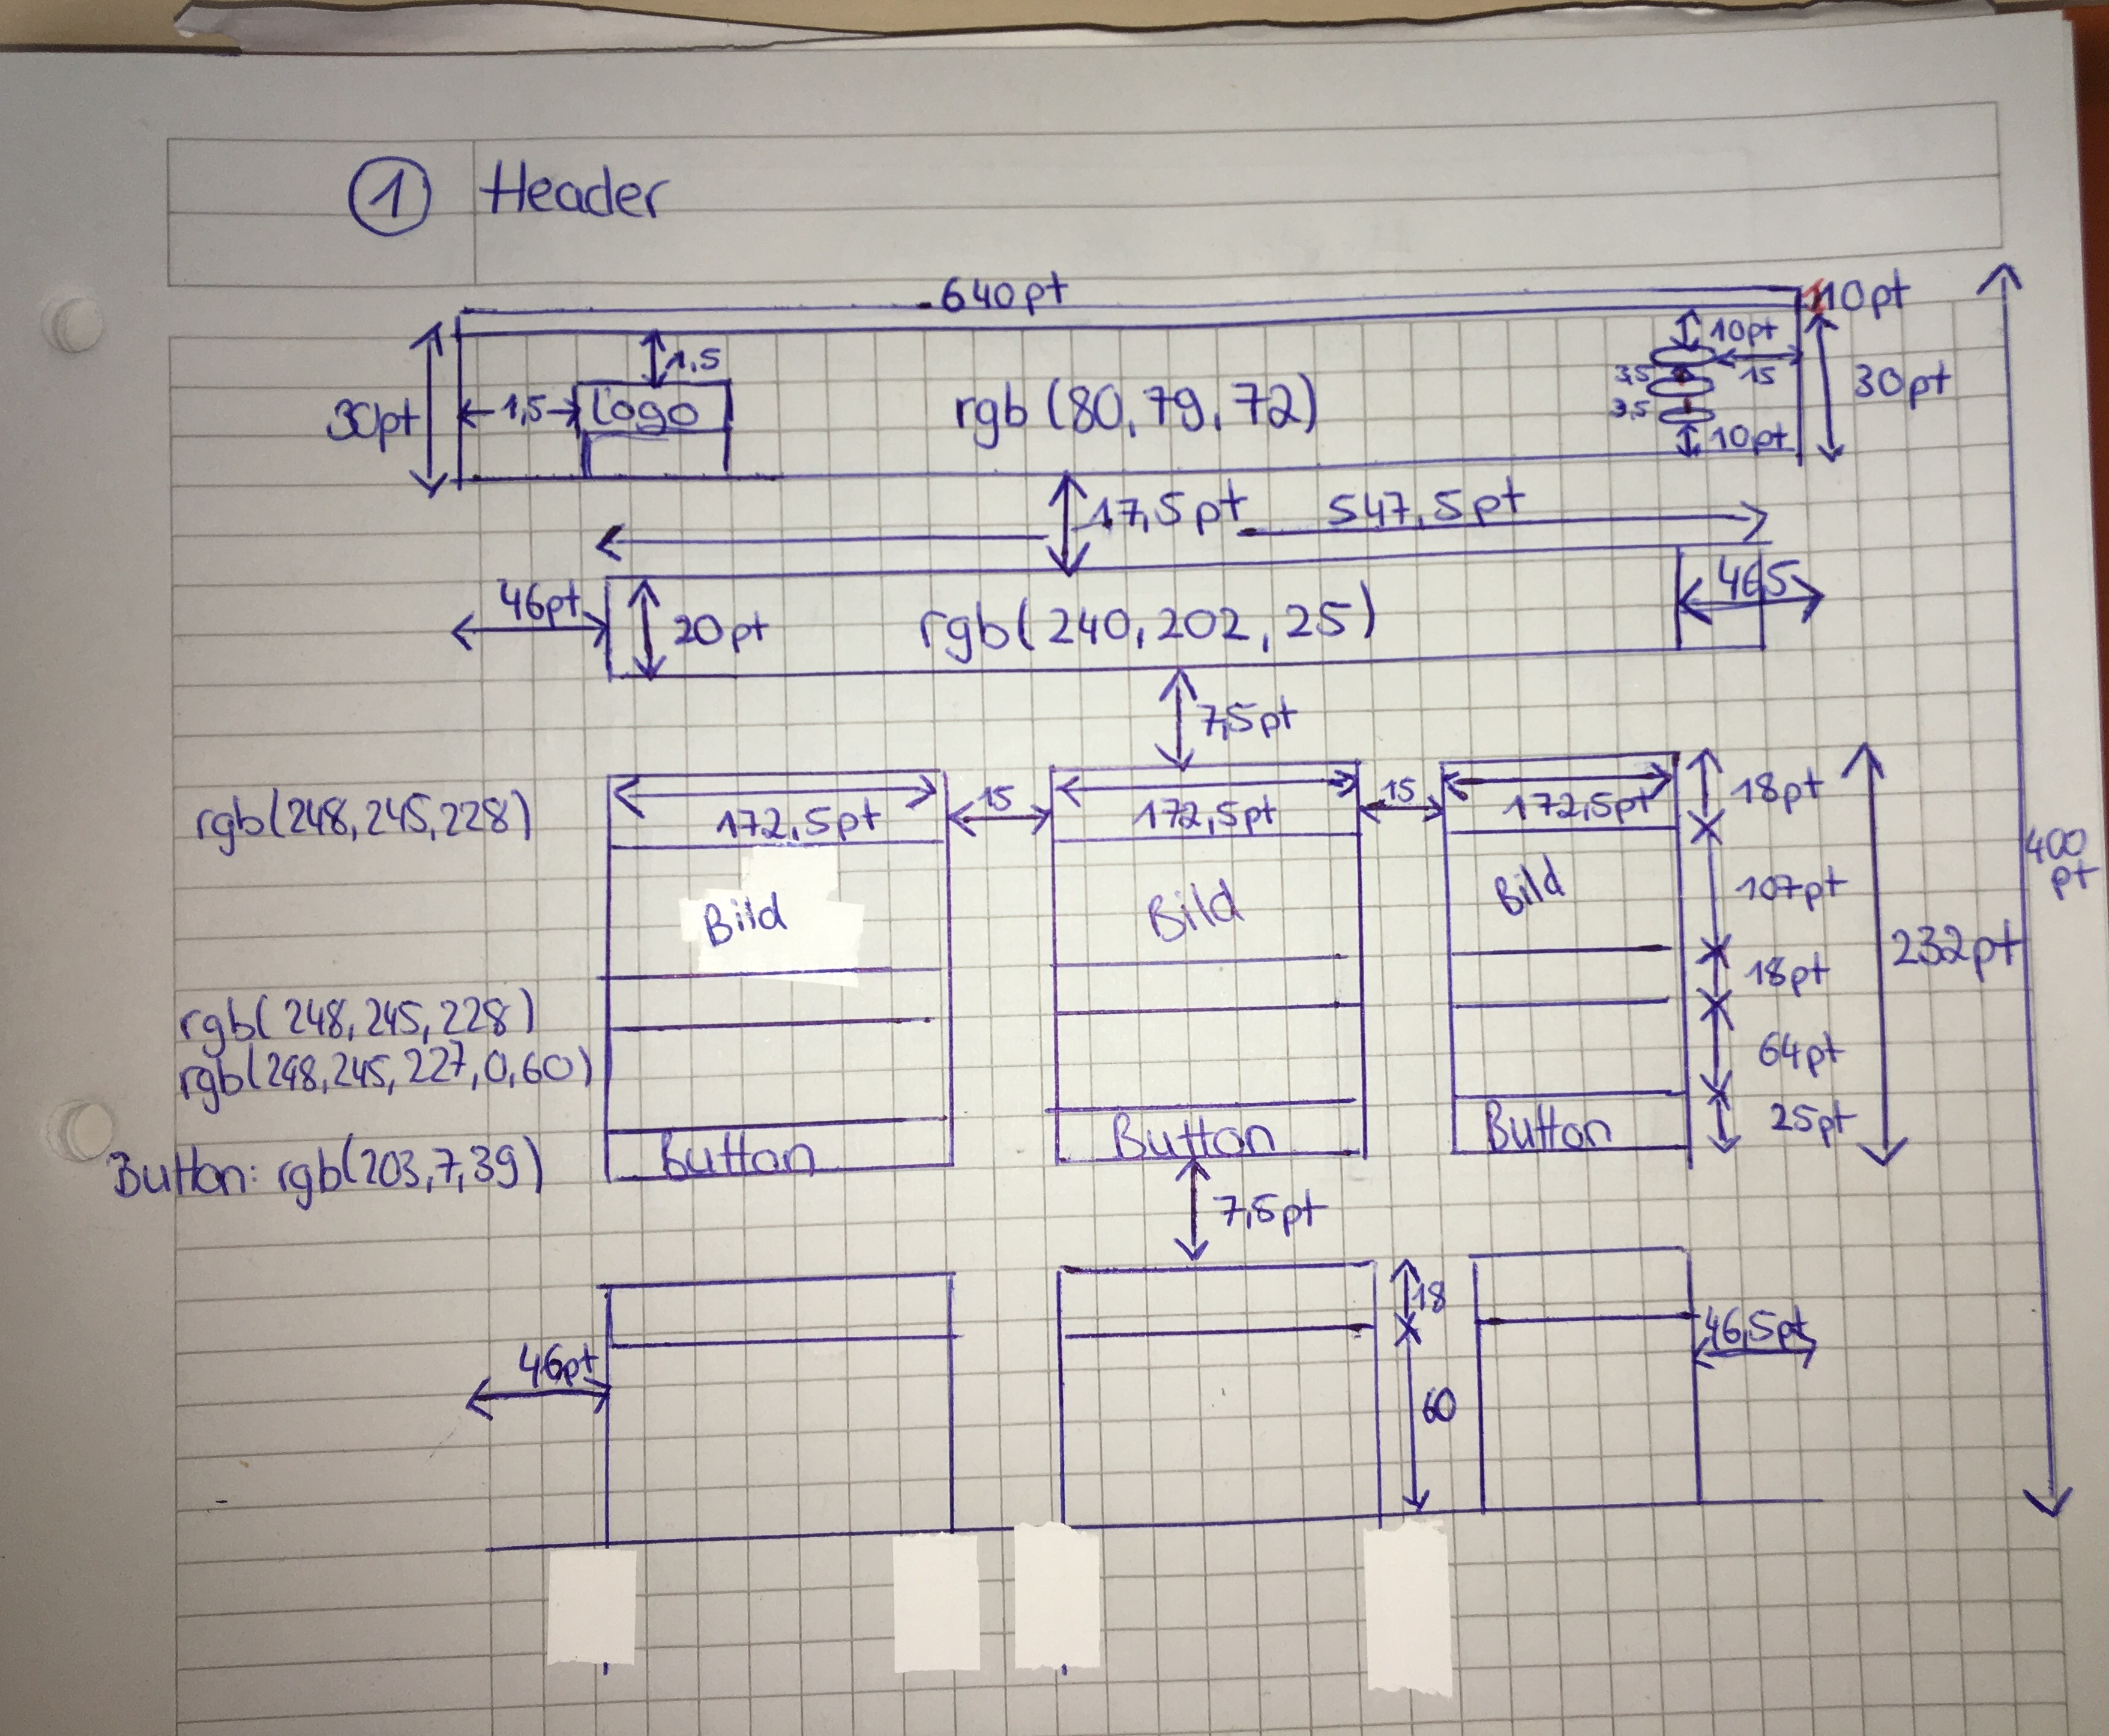 1 Header
640pt
10pt
30pt
1,5
1,5
Logo
rgb (80, 79, 72)
10pt
15
3,5
3,5
10pt
30pt
17,5pt
547,5pt
46pt
20pt
rgb(240,202,25)
46,5
7,5pt
rgb(248,245,228)
172,5pt
15
172,5pt
15
172,5pt
18pt
400 pt
Bild
Bild
Bild
107pt
232pt
18pt
rgb(248,245,228)
rgb(248,245,227,0,60)
64pt
Button: rgb(203,7,39)
Button
Button
Button
25pt
7,5pt
18
46,5pt
46pt
60